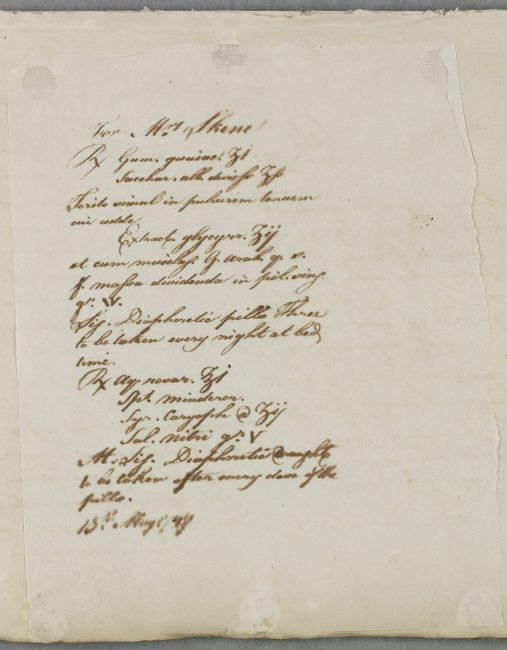 For Mrs Skene
℞ Gum. guaiac. ʒi
Sacchar. alb. duriss ʒss
Terito simul in pulverem tenuem
cui adde
Extract. glycyrr. ʒij
et cum mucelag. G. arab. q. s.
f. massa dividenda in pil. sing
gr. V.
Sig. Diaphoretic pills Three
to be taken every night at bed
time.
℞ Aq. novar. ʒi
Spt. minderer.
Syr. Caryoph @ ʒij
Sal. nitri gr. V
M. Sig. Diaphoretic draught
to be taken after every dose of the
pills.
13th May